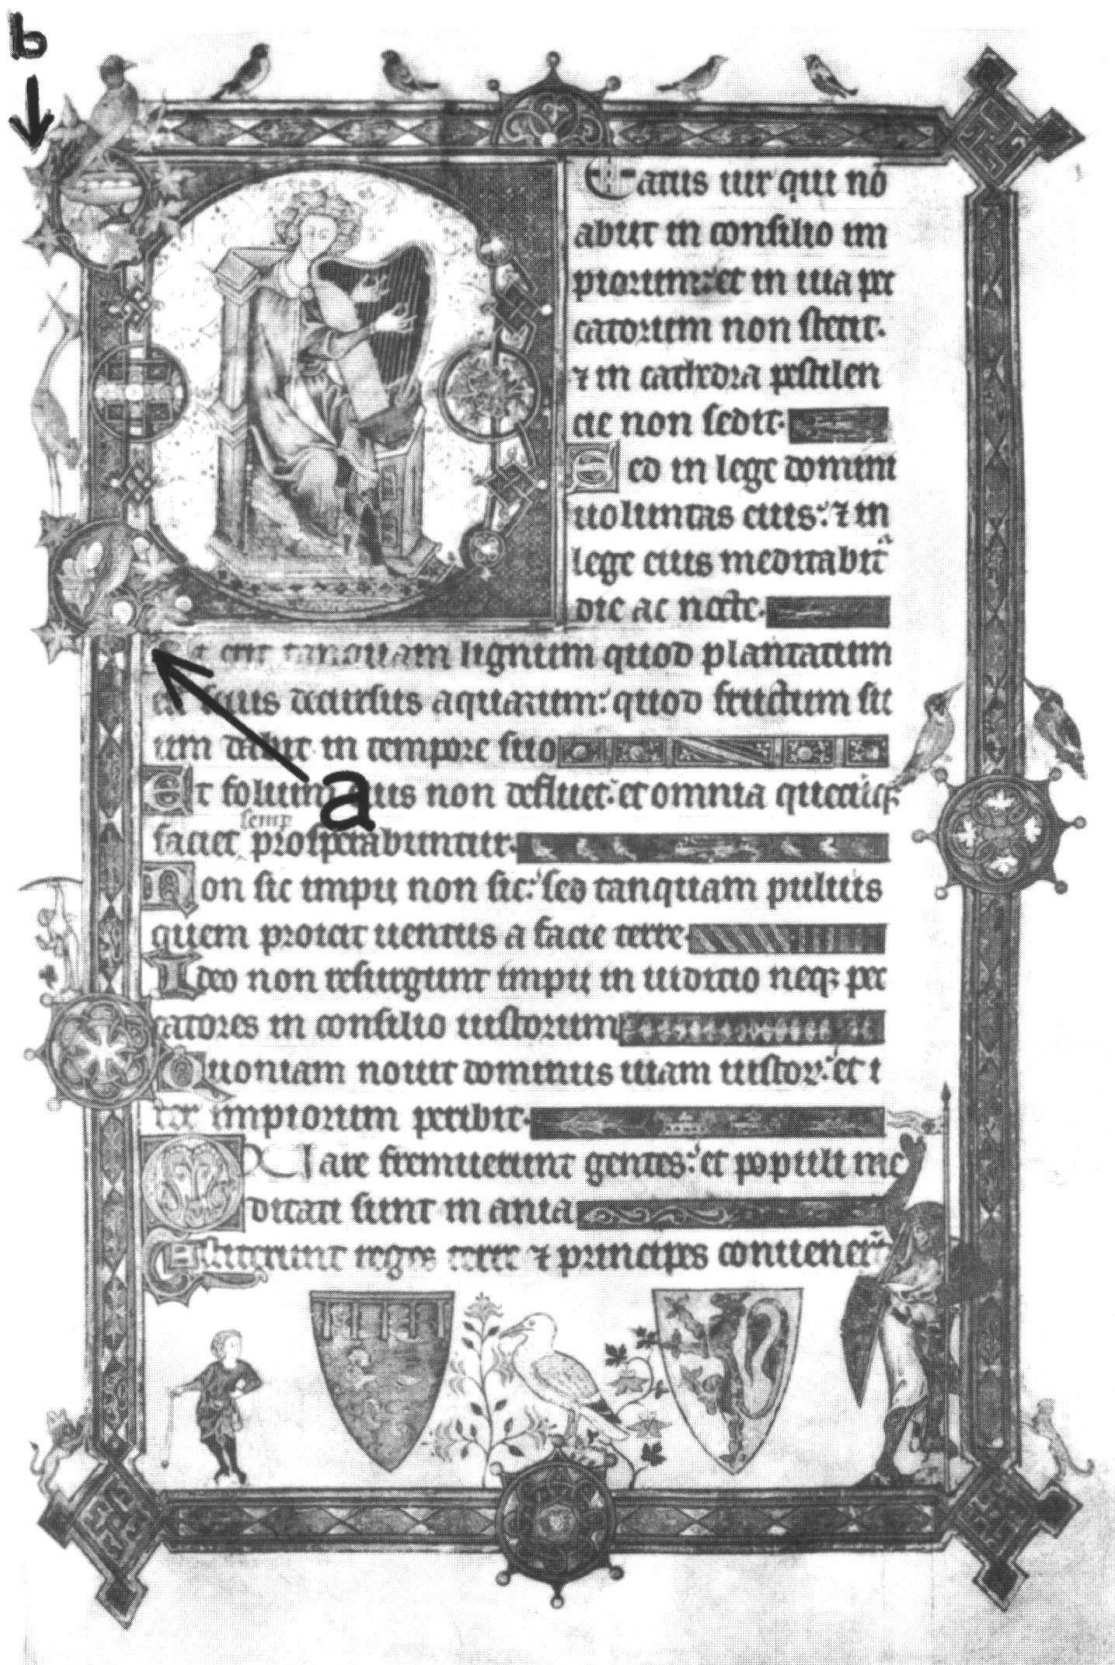 b
Eatus uir qui nō
abiit in consilio im
piorum: et in uia pec
catorum non stetit.
⁊ in cathedra pestilen
cie non sedit.
Sed in lege domini
uoluntas eius: ⁊ in
lege eius meditabit᷑
die ac nocte.
Et erit tanquam lignum quod plantatum
est secus decursus aquarum: quod fructum su
um dabit in tempore suo
a
Et folium eius non defluet: et omnia quecūq;
semp
faciet prosperabuntur.
Non sic impii non sic: sed tanquam puluis
quem proicit uentus a facie terre.
Ideo non resurgunt impii in iudicio neq; pec
catores in consilio iustorum
Quoniam nouit dominus uiam iustoꝝ: et i
ter impiorum peribit.
Quare fremuerunt gentes: et populi me
ditati sunt inania
Astiterunt reges terre ⁊ principes